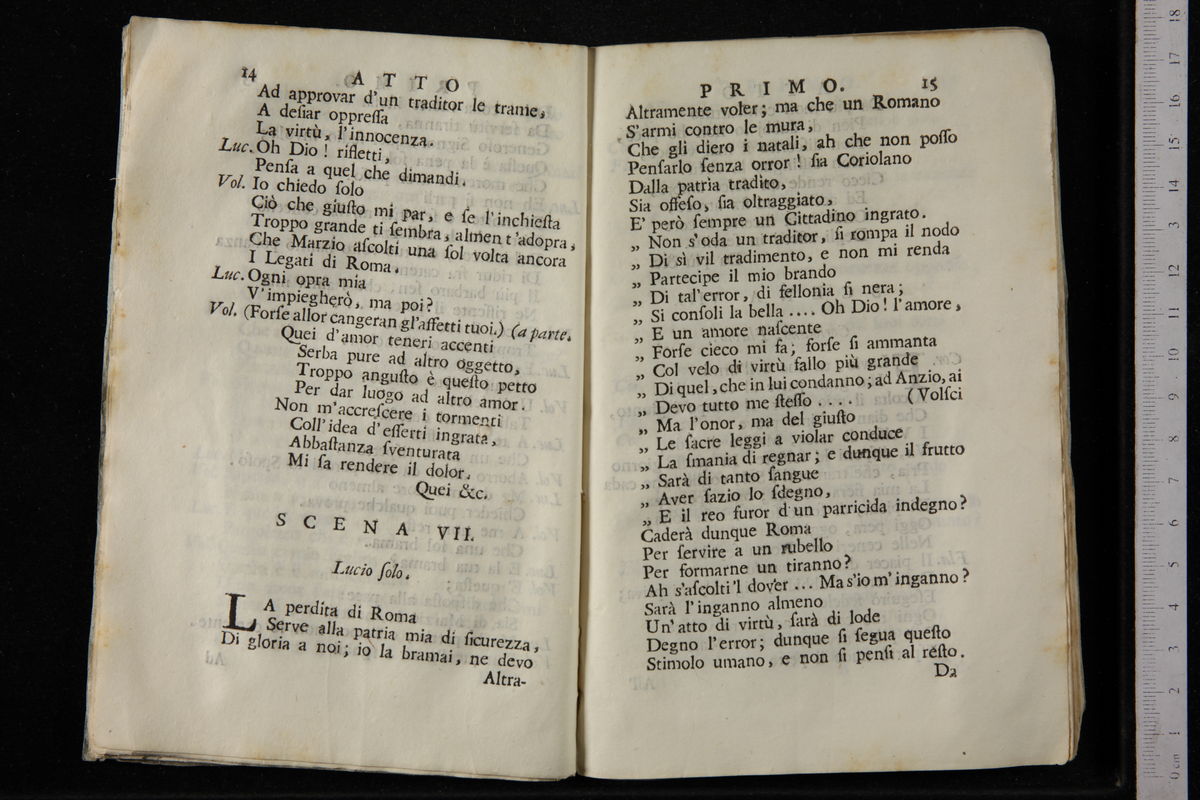 14 ATTO
Ad approvar d'un traditor le trame,
A deſiar oppreſſa
La virtù, l'innocenza.
Luc. Oh Dio! rifletti,
Penſa a quel che dimandi.
Vol. Io chiedo ſolo
Ciò che giuſto mi par, e ſe l'inchieſta
Troppo grande ti ſembra, almen t'adopra,
Che Marzio aſcolti una ſol volta ancora
I Legati di Roma.
Luc. Ogni opra mia
V'impiegherò, ma poi?
Vol. (Forſe allor cangeran gl'affetti tuoi.) (a parte.
Quei d'amor teneri accenti
Serba pure ad altro oggetto,
Troppo anguſto è queſto petto
Per dar luogo ad altro amor.
Non m'accreſcere i tormenti
Coll'idea d'eſſerti ingrata,
Abbaſtanza ſventurata
Mi ſa rendere il dolor.
Quei &c.
SCENA VII.
Lucio ſolo.
LA perdita di Roma
Serve alla patria mia di ſicurezza,
Di gloria a noi; io la bramai, ne devo
Altra-
PRIMO. 15
Altramente voler; ma che un Romano
S'armi contro le mura,
Che gli diero i natali, ah che non poſſo
Penſarlo ſenza orror! ſia Coriolano
Dalla patria tradito,
Sia offeſo, ſia oltraggiato,
E' però ſempre un Cittadino ingrato.
„ Non s'oda un traditor, ſi rompa il nodo
„ Di sì vil tradimento, e non mi renda
„ Partecipe il mio brando
„ Di tal'error, di fellonia ſi nera;
„ Si conſoli la bella .... Oh Dio! l'amore,
„ E un amore naſcente
„ Forſe cieco mi fa; forſe ſi ammanta
„ Col velo di virtù fallo più grande
„ Di quel, che in lui condanno; ad Anzio, ai
„ Devo tutto me ſteſſo .... (Volſci
„ Ma l'onor, ma del giuſto
„ Le ſacre leggi a violar conduce
„ La ſmania di regnar; e dunque il frutto
„ Sarà di tanto ſangue
„ Aver ſazio lo ſdegno,
„ E il reo furor d'un parricida indegno?
Caderà dunque Roma
Per ſervire a un rubello
Per formarne un tiranno?
Ah s'aſcolti'l dover ... Ma s'io m'inganno?
Sarà l'inganno almeno
Un'atto di virtù, ſarà di lode
Degno l'error; dunque ſi ſegua queſto
Stimolo umano, e non ſi penſi al reſto.
Da